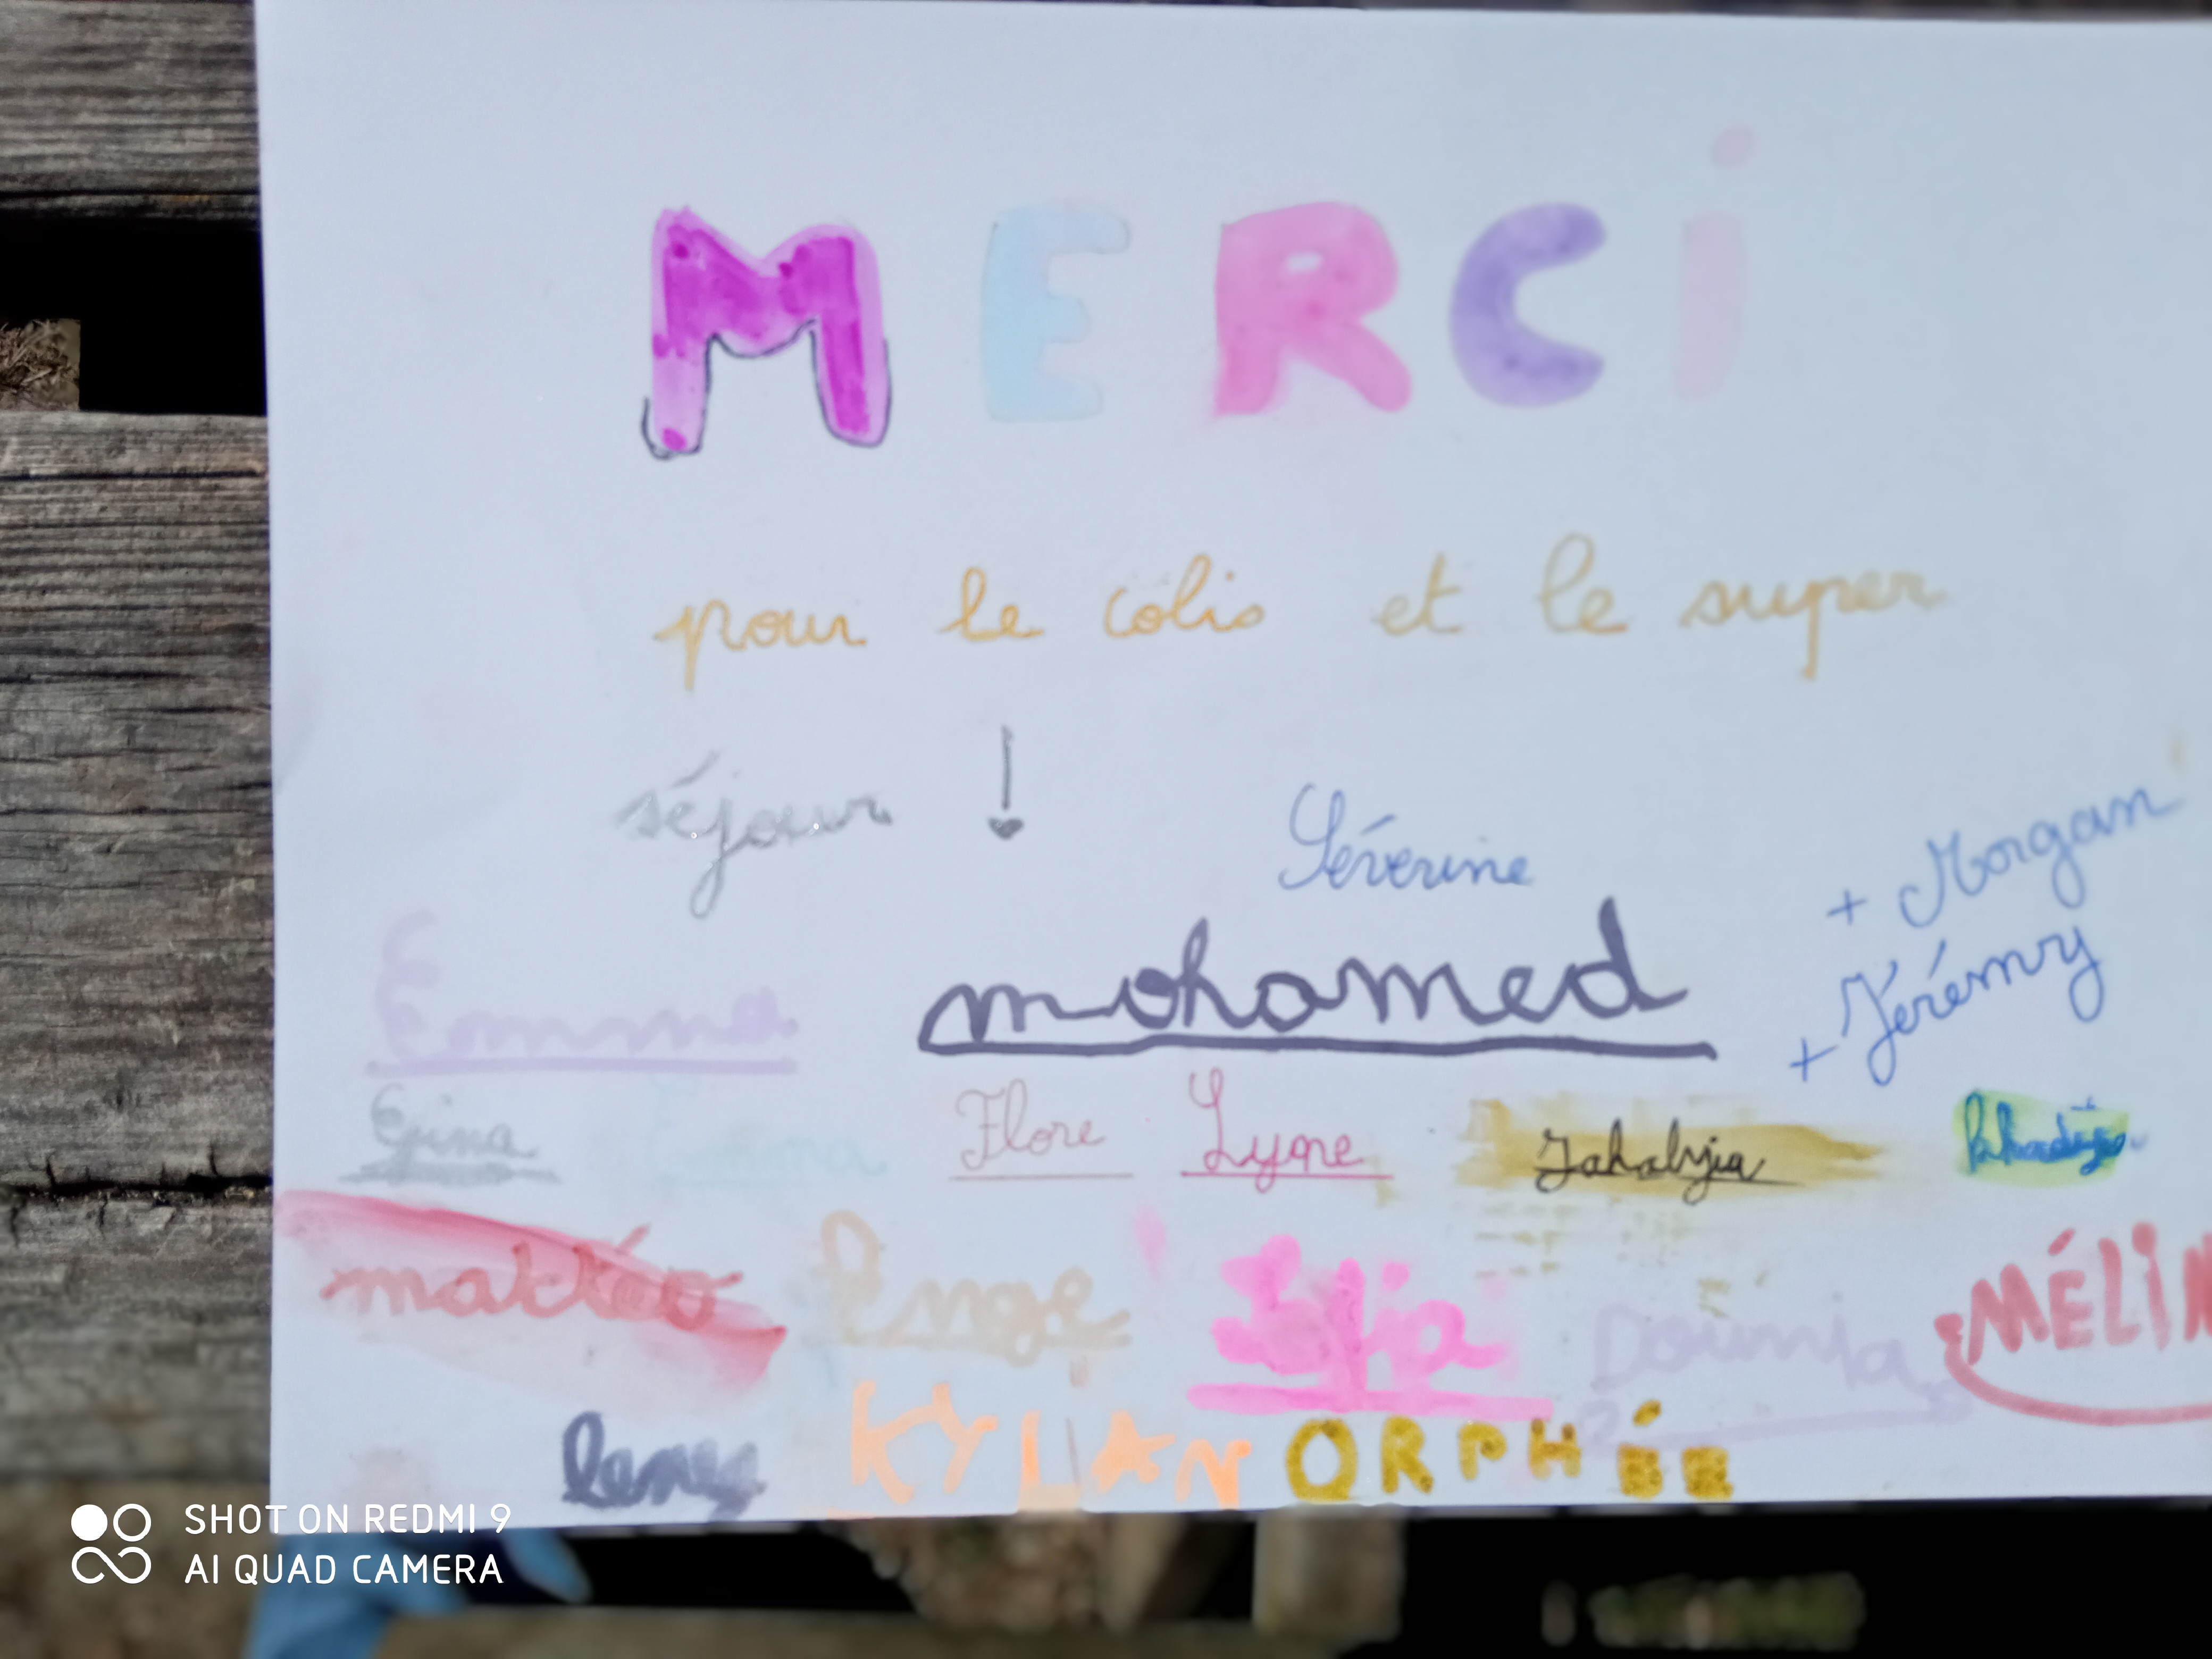 MERCi
pour le colis et le super
séjour !
Séverine
+ Morgan
+ Jérémy
Emma
mohamed
Emma
Flore
Lyne
Khadija
mattéo
Dounia
MÉLIN
KYLIAN
ORPHÉE
SHOT ON REDMI 9
AI QUAD CAMERA